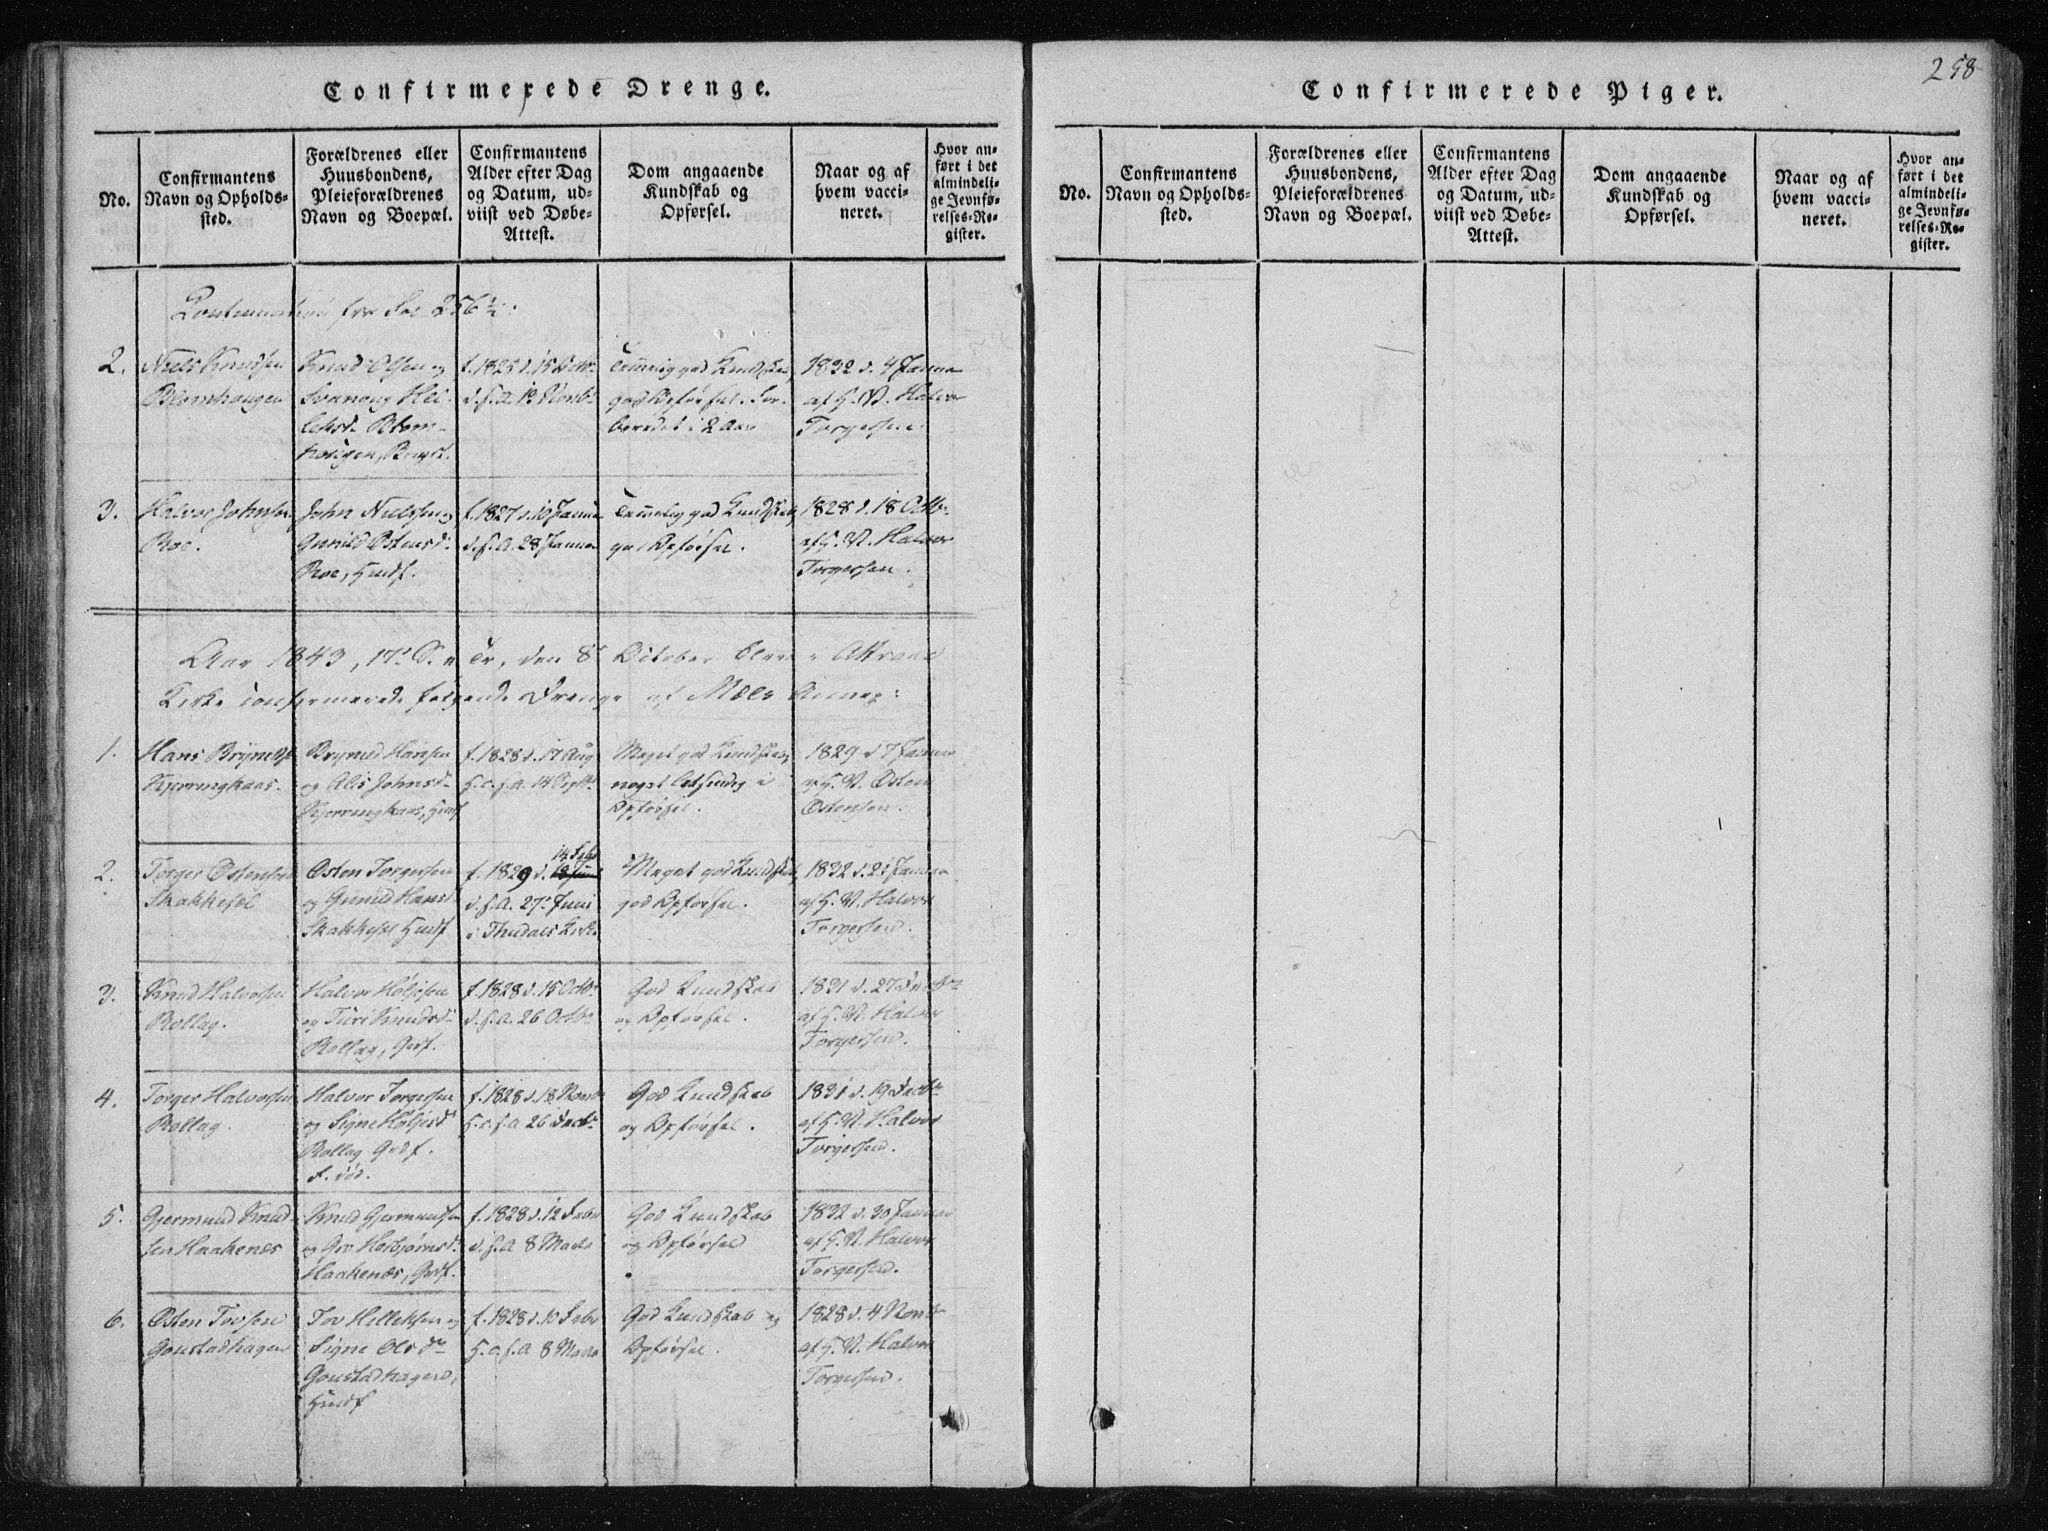 Confirmerede Drenge.
No.
Confirmantens
Navn og Opholds-
sted.
Forældrenes eller
Huusbondens,
Pleieforældrenes
Navn og Boepæl.
Confirmantens
Alder efter Dag
og Datum, ud-
viist ved Døbe-
Attest.
Dom angaaende
Kundskab og
Opførsel.
Naar og af
hvem vacci-
neret.
Hvor an-
ført i det
almindeli-
ge Jevnfø-
relses-Re-
gister.
Continuation fra Fol 256½:
2.
Niels Knudsen
Blomhaugen
Knud Olsen og
Svanaug Hel-
leksd. Blom-
haugen,
f. 1825 d. 15 Octbr
d. s. A. 13 Novbr
Temmelig god Kundskab,
god Opførsel. For-
beredet i 2 Aar
1832 d. 4 Januar
af H. V. Halvor
Torgersen.
3.
Halvor Johnsen
Roe.
John Nielsen og
Gunild Ostensd.
Roe, Husf.
f. 1827 d. 10 Januar
d. s. A. 28 Januar
Temmelig god Kundskab,
god Opførsel.
1828 d. 18 Octbr
af H. V. Halvor
Torgersen.
Aar 1843, 17. S. e Tr, den 8. October bleve i Attraae
Kirke confirmerede følgende Drenge af Mæls Annex:
1.
Hans Brynilds
Kjerringkaas.
Brynild Hansen
og Alis Johnsd.
Kjerringkaas, Husf
f. 1828 d. 17 Aug
H. c. s. A. 14 Septbr.
Meget god Kundskab,
noget letsindig i
Opførsel.
1829 d. 7 Januar
af H. V. Osten
Ostensen.
2.
Torger Ostensen
Skakkesel
Osten Torgersen
og Gunild Hansd.
Skakkesel Husf
14 Febr
f. 1829 d. 18 Juni
d. s. A. 27. Juni
i Tinddals Kirke
Meget god Kundskab,
god Opførsel.
1832 d. 21 Januar
af H. V. Halvor
Torgersen.
3.
Knud Halvorsen
Rollag.
Halvor Høljesen
og Turi Knudsd.
Rollag, Grdf.
f. 1828 d. 15 Octbr
d. s. A. 26 Octbr
God Kundskab
og Opførsel.
1831 d. 27 Decbr
af H. V. Halvor
Torgersen.
4.
Torger Halvorsen
Rollag.
Halvor Torgersen
og Signe Høljesd
Rollag Grdf.
F. død.
f. 1828 d. 18 Novbr
H. c. s. A. 26 Decbr.
God Kundskab
og Opførsel.
1831 d. 19 Decbr
af H. V. Halvor
Torgersen.
5.
Gjermund Knud-
sen Haakenæs
Knud Gjermundsen
og Gro Herbjørnsd.
Haakenæs, Grdf.
f. 1828 d. 12 Febr
d. s. A 8 Marts
God Kundskab
og Opførsel
1832 d. 30 Januar
af H. V. Halvor
Torgersen.
6.
Osten Tovsen
Goustadhagen
Tov Helleksen og
Signe Olsdr
Goustadhagen,
Husf
f. 1828 d. 10 Febr
H. c. s. A 8 Marts
God Kundskab og
Opførsel.
1828 d. 4 Novbr
af H. V. Halvor
Torgersen.
258
Confirmerede Piger.
No.
Confirmantens
Navn og Opholds-
sted.
Forældrenes eller
Huusbondens,
Pleieforældrenes
Navn og Boepæl.
Confirmantens
Alder efter Dag
og Datum, ud-
viist ved Døbe-
Attest.
Dom angaaende
Kundskab og
Opførsel.
Naar og af
hvem vacci-
neret.
Hvor an-
ført i det
almindeli-
ge Jevnfø-
relses-Re-
gister.